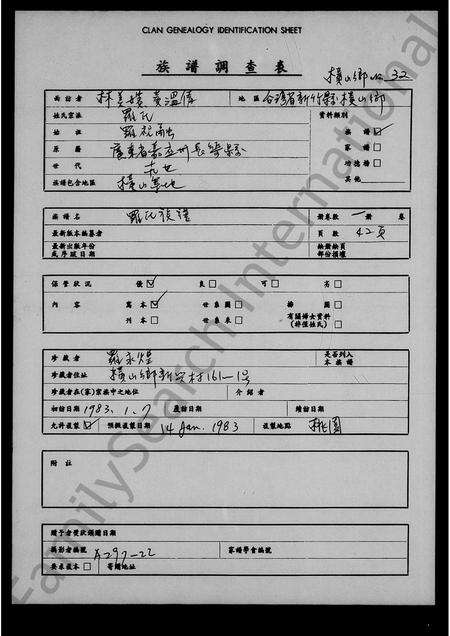 CLAN GENEALOGY IDENTIFICATION SHEET
族譜調查表
橫山鄉 No. 32
面訪者 地區 台灣省新竹縣橫山鄉
姓氏宗派 羅氏 資料類別
始祖 羅 族譜 ☑
原籍 廣東省嘉應州長樂縣 家譜 □
世代 功德榜 □
族譜包含地區 橫山等地 其他
族譜名 羅氏族譜 冊卷數 一冊 卷
最新版本編纂者 頁數 42頁
最新出版年份 缺冊缺頁
或序跋日期 部份損壞
保管狀況 優 ☑ 良 □ 可 □ 劣 □
內容 寫本 ☑ 世系圖 □ 插圖 □
刊本 □ 世系表 □ 有關婦女資料 □
(詳僅姓氏)
珍藏者 羅永煌 是否列入
本族譜
珍藏者住址 橫山鄉新興村161-1号
珍藏者在(家)宗族中之地位 介紹者
初訪日期 1983.1.7 覆訪日期 續訪日期
允許複製 ☑ 預擬複製日期 14 Jan. 1983 複製地點 桃園
附註
贈予者獎狀頒贈日期
攝影者編號 A297-22 家譜學會編號
要求孤本 □ 寄贈地址
FamilySearch International